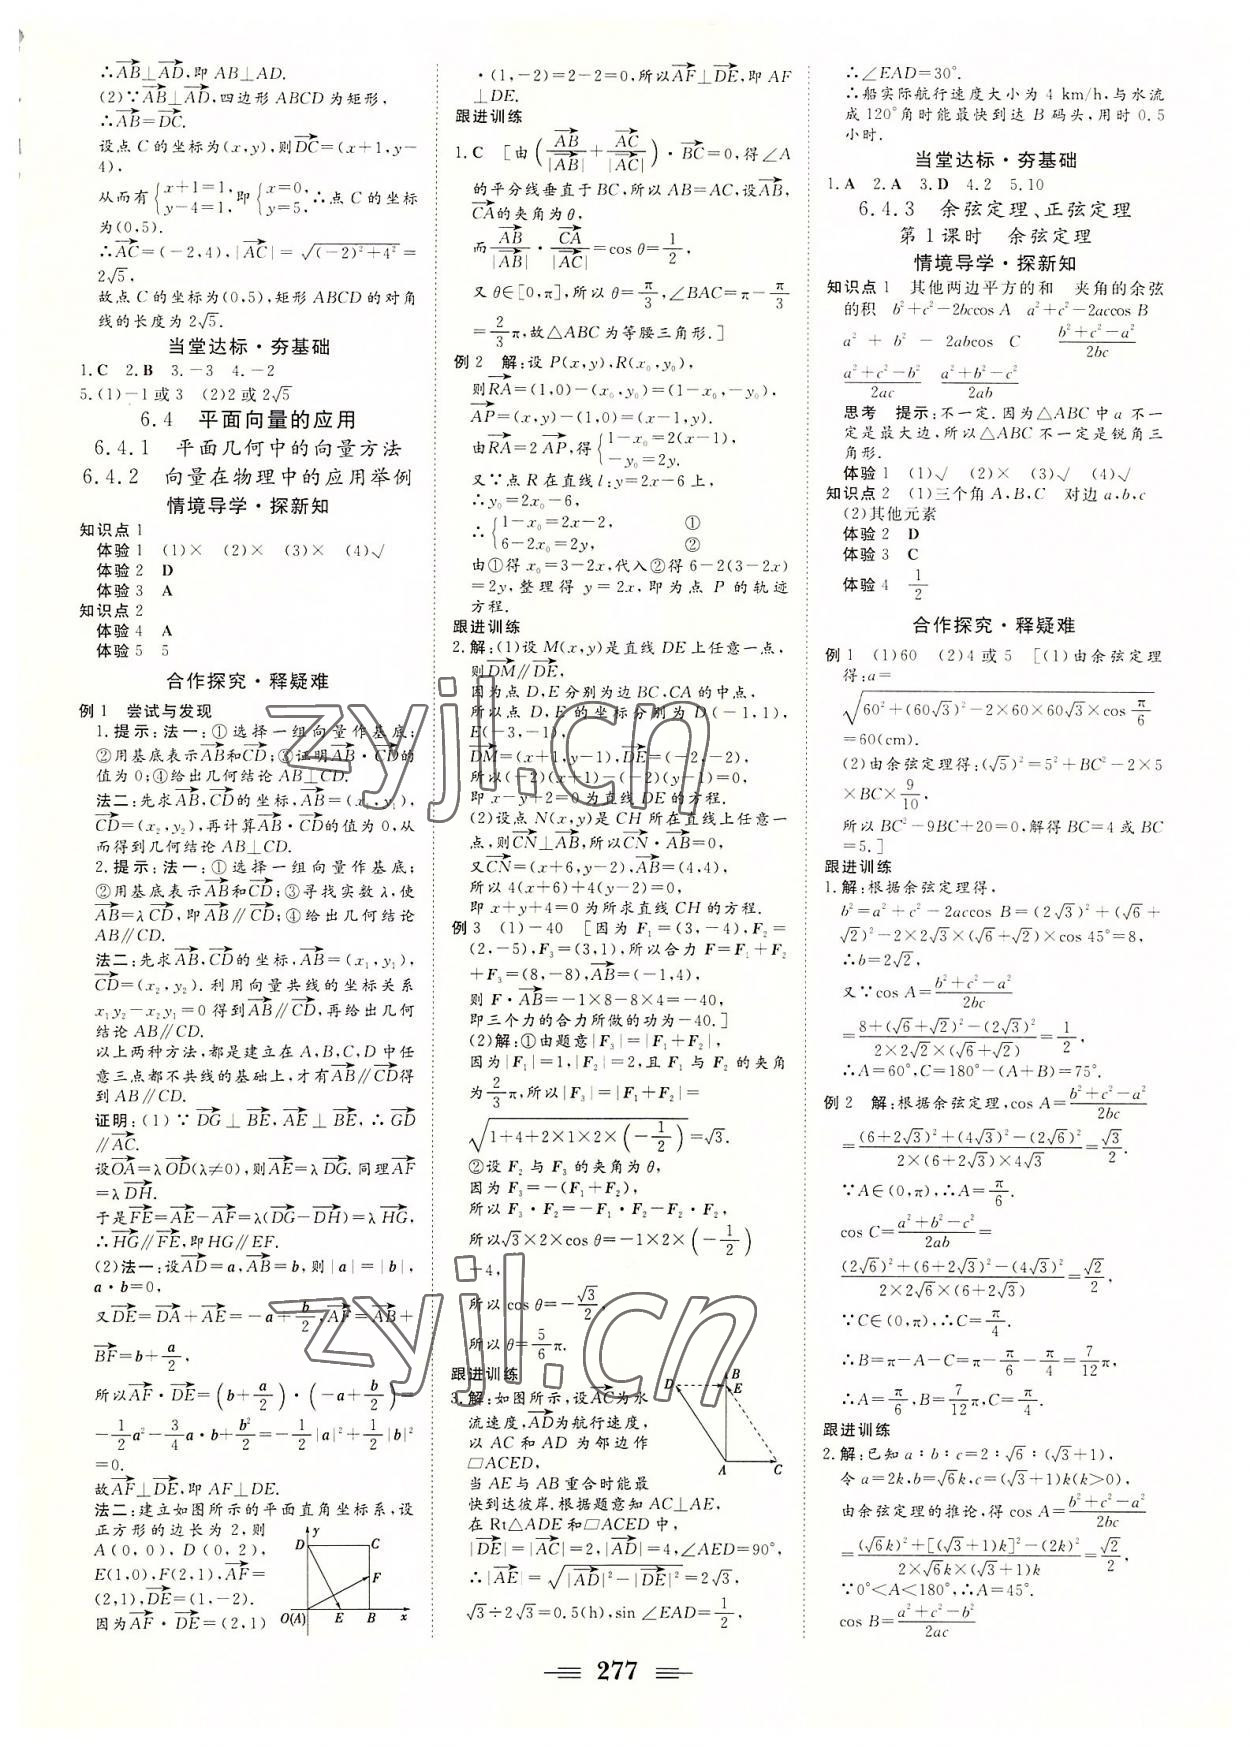 ∴AB⊥AD,即 AB⊥AD.
(2)∵AB⊥AD,四边形 ABCD 为矩形,
∴AB=DC.
设点 C 的坐标为(x,y),则DC=(x+1,y-
4),
从而有{x+1=1, y-4=1,即{x=0, y=5,∴点 C 的坐标
为(0,5).
∴AC=(-2,4),|AC|=√((-2)²+4²)=
2√5,
故点 C 的坐标为(0,5),矩形 ABCD 的对角
线的长度为 2√5.
当堂达标·夯基础
1.C 2.B 3.-3 4.-2
5.(1)-1 或 3 (2)2 或 2√5
6.4 平面向量的应用
6.4.1 平面几何中的向量方法
6.4.2 向量在物理中的应用举例
情境导学·探新知
知识点 1
体验 1 (1)× (2)× (3)× (4)√
体验 2 D
体验 3 A
知识点 2
体验 4 A
体验 5 5
合作探究·释疑难
例 1 尝试与发现
1.提示:法一:①选择一组向量作基底;
②用基底表示AB和CD;③证明AB·CD的
值为 0;④给出几何结论 AB⊥CD.
法二:先求AB,CD的坐标,AB=(x₁,y₁),
CD=(x₂,y₂),再计算AB·CD的值为 0,从
而得到几何结论 AB⊥CD.
2.提示:法一:①选择一组向量作基底;
②用基底表示AB和CD;③寻找实数 λ,使
AB=λCD,即AB∥CD;④给出几何结论
AB∥CD.
法二:先求AB,CD的坐标,AB=(x₁,y₁),
CD=(x₂,y₂).利用向量共线的坐标关系
x₁y₂-x₂y₁=0 得到AB∥CD,再给出几何
结论 AB∥CD.
以上两种方法,都是建立在 A,B,C,D 中任
意三点都不共线的基础上,才有AB∥CD得
到 AB∥CD.
证明:(1)∵DG⊥BE,AE⊥BE,∴GD
∥AC.
设OA=λOD(λ≠0),则AE=λDG.同理AF
=λDH.
于是FE=AE-AF=λ(DG-DH)=λHG,
∴HG∥FE,即 HG∥EF.
(2)法一:设AD=a,AB=b,则|a|=|b|,
a·b=0,
又DE=DA+AE=-a+b/2,AF=AB+
BF=b+a/2,
所以AF·DE=(b+a/2)·(-a+b/2)=
-1/2a²-3/4a·b+b²/2=-1/2|a|²+1/2|b|²
=0.
故AF⊥DE,即 AF⊥DE.
法二:建立如图所示的平面直角坐标系,设
正方形的边长为 2,则
A(0,0),D(0,2),
E(1,0),F(2,1),AF=
(2,1),DE=(1,-2).
因为AF·DE=(2,1)
y
D C
F
O(A) E B x
·(1,-2)=2-2=0,所以AF⊥DE,即 AF
⊥DE.
跟进训练
1.C [由(AB/|AB|+AC/|AC|)·BC=0,得∠A
的平分线垂直于 BC,所以 AB=AC,设AB,
CA的夹角为 θ,
而AB/|AB|·CA/|AC|=cos θ=1/2,
又 θ∈[0,π],所以 θ=π/3,∠BAC=π-π/3
=2/3π,故△ABC 为等腰三角形.]
例 2 解:设 P(x,y),R(x₀,y₀),
则RA=(1,0)-(x₀,y₀)=(1-x₀,-y₀),
AP=(x,y)-(1,0)=(x-1,y).
由RA=2AP,得{1-x₀=2(x-1), -y₀=2y.
又∵点 R 在直线 l:y=2x-6 上,
∴y₀=2x₀-6,
∴{1-x₀=2x-2, ① 6-2x₀=2y, ②
由①得 x₀=3-2x,代入②得 6-2(3-2x)
=2y,整理得 y=2x,即为点 P 的轨迹
方程.
跟进训练
2.解:(1)设 M(x,y)是直线 DE 上任意一点,
则DM∥DE,
因为点 D,E 分别为边 BC,CA 的中点,
所以点 D,E 的坐标分别为 D(-1,1),
E(-3,-1),
DM=(x+1,y-1),DE=(-2,-2),
所以(-2)(x+1)-(-2)(y-1)=0,
即 x-y+2=0 为直线 DE 的方程.
(2)设点 N(x,y)是 CH 所在直线上任意一
点,则CN⊥AB,所以CN·AB=0,
又CN=(x+6,y-2),AB=(4,4),
所以 4(x+6)+4(y-2)=0,
即 x+y+4=0 为所求直线 CH 的方程.
例 3 (1)-40 [因为 F₁=(3,-4),F₂=
(2,-5),F₃=(3,1),所以合力 F=F₁+F₂
+F₃=(8,-8),AB=(-1,4),
则 F·AB=-1×8-8×4=-40,
即三个力的合力所做的功为-40.]
(2)解:①由题意|F₃|=|F₁+F₂|,
因为|F₁|=1,|F₂|=2,且 F₁ 与 F₂ 的夹角
为2/3π,所以|F₃|=|F₁+F₂|=
√(1+4+2×1×2×(-1/2))=√3.
②设 F₂ 与 F₃ 的夹角为 θ,
因为 F₃=-(F₁+F₂),
所以 F₃·F₂=-F₁·F₂-F₂·F₂,
所以√3×2×cos θ=-1×2×(-1/2)
-4,
所以 cos θ=-√3/2,
所以 θ=5/6π.
跟进训练
3.解:如图所示,设AC为水
流速度,AD为航行速度,
以 AC 和 AD 为邻边作
□ACED,
当 AE 与 AB 重合时能最
快到达彼岸.根据题意知 AC⊥AE,
在 Rt△ADE 和□ACED 中,
|DE|=|AC|=2,|AD|=4,∠AED=90°,
∴|AE|=√(|AD|²-|DE|²)=2√3,
√3÷2√3=0.5(h),sin ∠EAD=1/2,
B
D E
A C
∴∠EAD=30°.
∴船实际航行速度大小为 4 km/h,与水流
成 120°角时能最快到达 B 码头,用时 0.5
小时.
当堂达标·夯基础
1.A 2.A 3.D 4.2 5.10
6.4.3 余弦定理、正弦定理
第 1 课时 余弦定理
情境导学·探新知
知识点 1 其他两边平方的和 夹角的余弦
的积 b²+c²-2bccos A a²+c²-2accos B
a²+b²-2abcos C (b²+c²-a²)/2bc
(a²+c²-b²)/2ac (a²+b²-c²)/2ab
思考 提示:不一定.因为△ABC 中 a 不一
定是最大边,所以△ABC 不一定是锐角三
角形.
体验 1 (1)√ (2)× (3)√ (4)√
知识点 2 (1)三个角 A,B,C 对边 a,b,c
(2)其他元素
体验 2 D
体验 3 C
体验 4 1/2
合作探究·释疑难
例 1 (1)60 (2)4 或 5 [(1)由余弦定理
得:a=
√(60²+(60√3)²-2×60×60√3×cos π/6)
=60(cm).
(2)由余弦定理得:(√5)²=5²+BC²-2×5
×BC×9/10,
所以 BC²-9BC+20=0,解得 BC=4 或 BC
=5.]
跟进训练
1.解:根据余弦定理得,
b²=a²+c²-2accos B=(2√3)²+(√6+
√2)²-2×2√3×(√6+√2)×cos 45°=8,
∴b=2√2,
又∵cos A=(b²+c²-a²)/2bc
=(8+(√6+√2)²-(2√3)²)/(2×2√2×(√6+√2))=1/2,
∴A=60°,C=180°-(A+B)=75°.
例 2 解:根据余弦定理,cos A=(b²+c²-a²)/2bc
=((6+2√3)²+(4√3)²-(2√6)²)/(2×(6+2√3)×4√3)=√3/2.
∵A∈(0,π),∴A=π/6.
cos C=(a²+b²-c²)/2ab=
((2√6)²+(6+2√3)²-(4√3)²)/(2×2√6×(6+2√3))=√2/2,
∵C∈(0,π),∴C=π/4.
∴B=π-A-C=π-π/6-π/4=7/12π,
∴A=π/6,B=7/12π,C=π/4.
跟进训练
2.解:已知 a:b:c=2:√6:(√3+1),
令 a=2k,b=√6k,c=(√3+1)k(k>0),
由余弦定理的推论,得 cos A=(b²+c²-a²)/2bc
=((√6k)²+[(√3+1)k]²-(2k)²)/(2×√6k×(√3+1)k)=√2/2,
∵0°<A<180°,∴A=45°.
cos B=(a²+c²-b²)/2ac
277
zyjl.cn
zyjl.cn